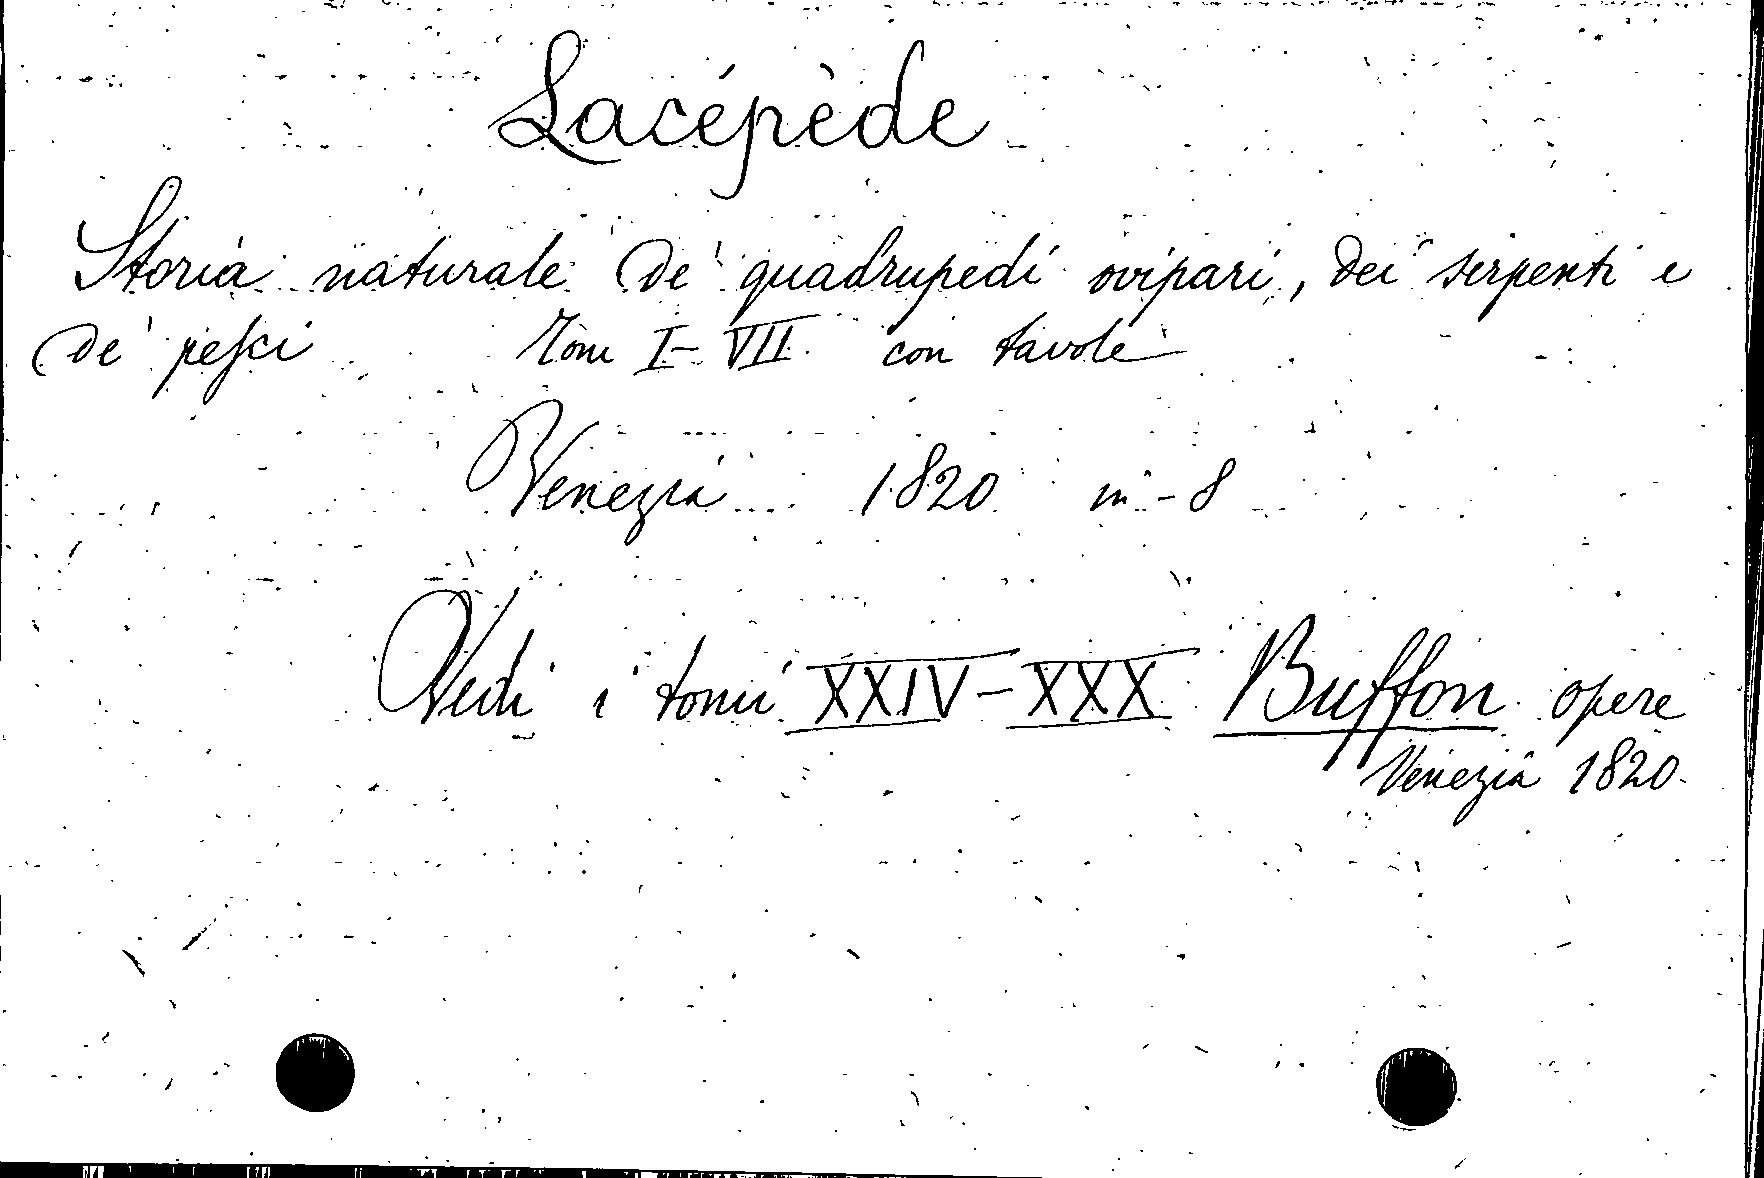 Lacépède
Storia naturale de' quadrupedi ovipari, dei serpenti e
de' pesci Tom I-VII con tavole
Venezia 1820 in-8
Vedi i tomi XXIV-XXX Buffon opere
Venezia 1820